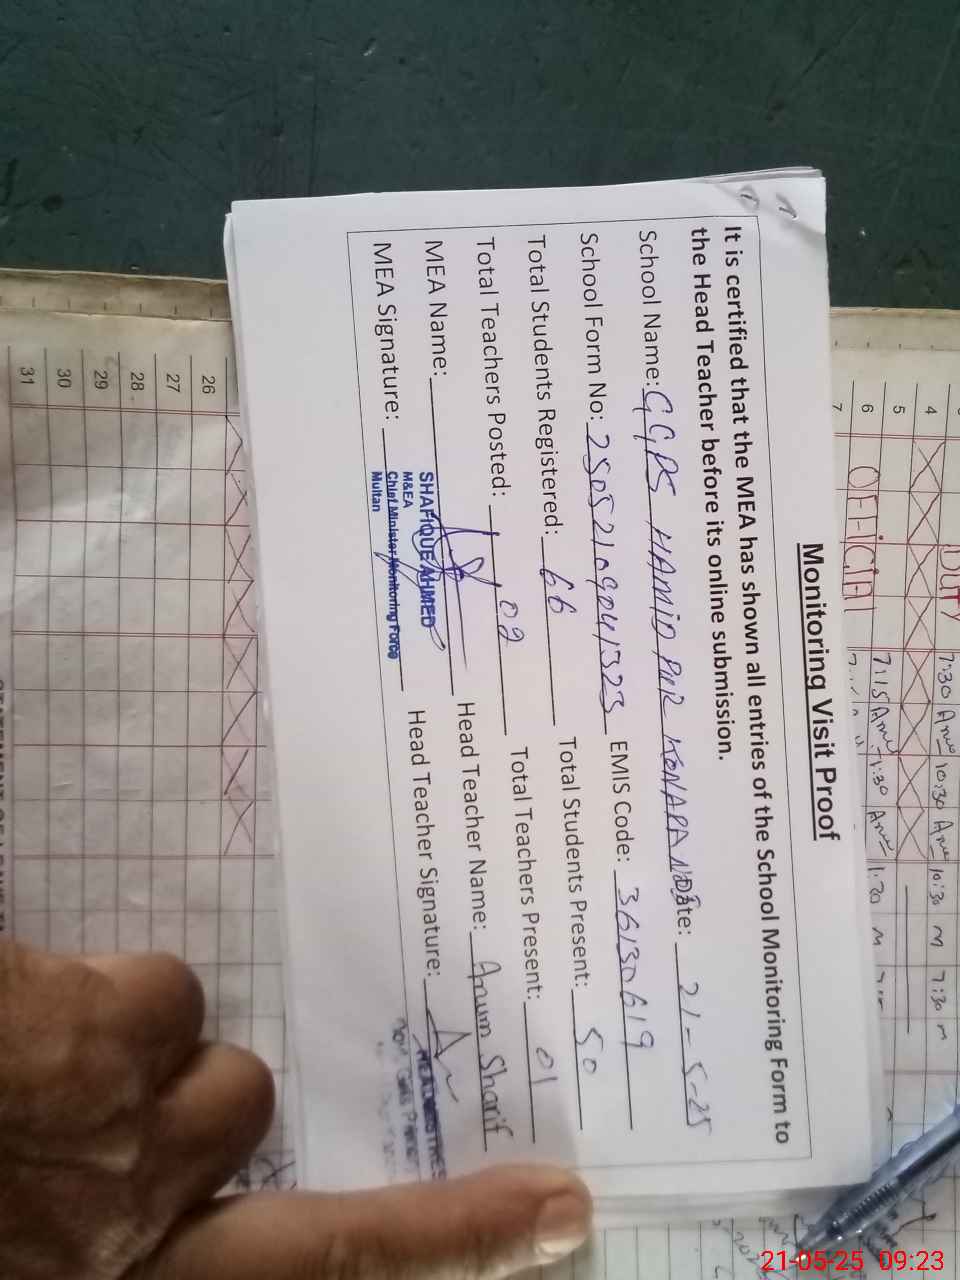 Monitoring Visit Proof
It is certified that the MEA has shown all entries of the School Monitoring Form to
the Head Teacher before its online submission.
School Name: GGPS HAMID PUR KONARA Date: 21-5-25
School Form No: EMIS Code: 36130619
Total Students Registered: 66 Total Students Present: 50
Total Teachers Posted: 02 Total Teachers Present: 01
MEA Name: Head Teacher Name: Anum Sharif
MEA Signature: Head Teacher Signature:
SHAFIQUE AHMED
M&EA
Chief Minister Monitoring Force
Multan
HEADMISTRESS
4
5
6
7
OFFICIAL
DUTY
7:30 Am 10:30 Am 10:30 m 7:30 m
7:15 Am
26
27
28
29
30
31
21-05-25 09:23